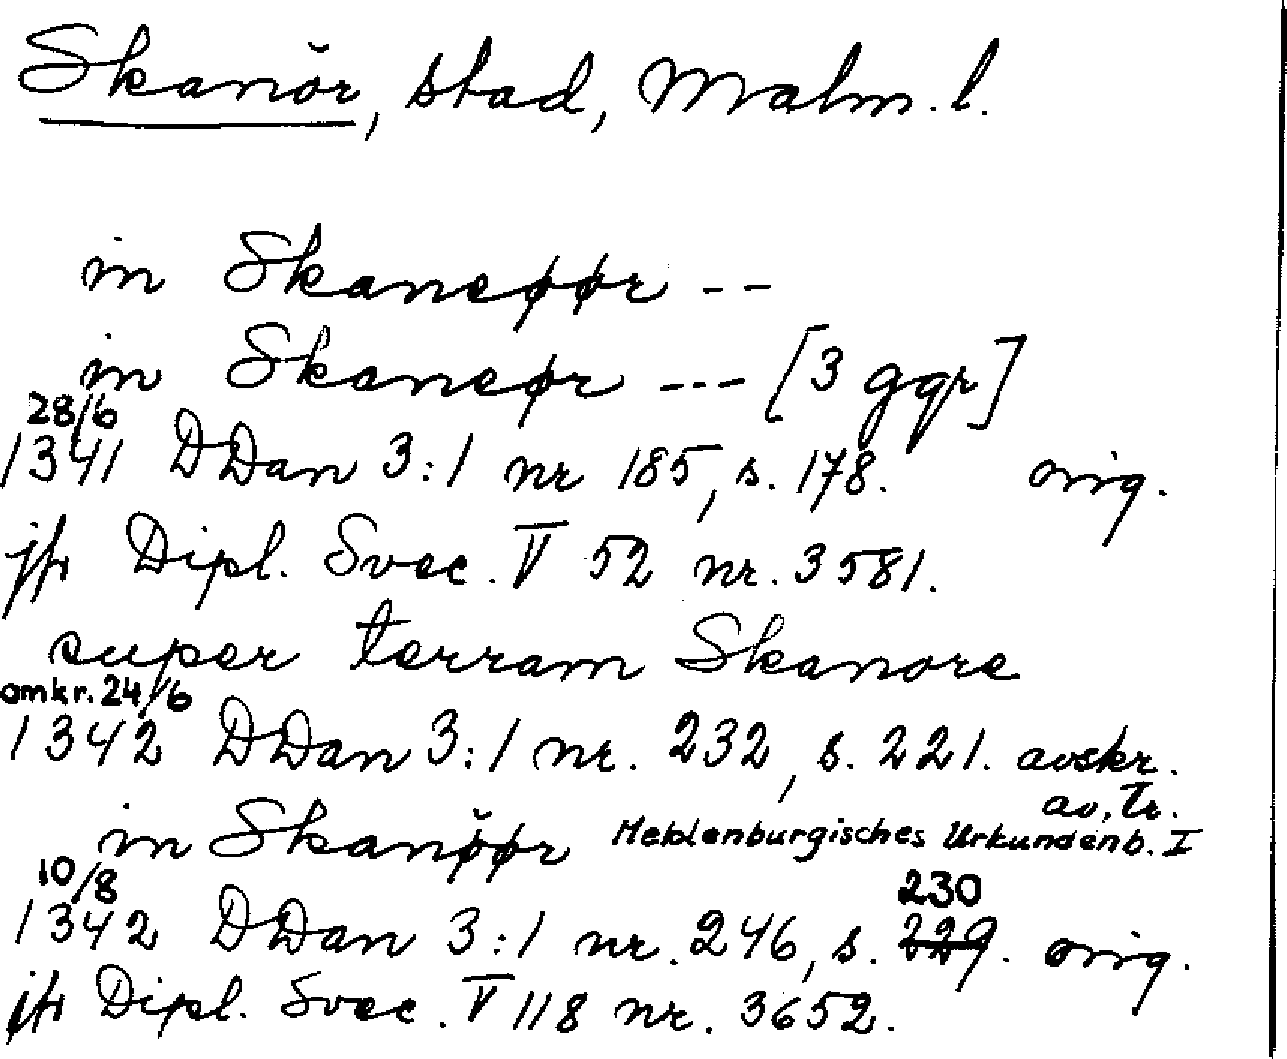 Skanör, stad, Malm. l.
in Skaneøør --
in Skaneør --- [3 ggr]
28/6
1341 DDan 3:1 nr 185, s. 178. orig.
jfr Dipl. Svec. V 52 nr. 3581.
super terram Skanore
omkr. 24/6
1342 DDan 3:1 nr. 232, s. 221. avskr.
av. tr.
in Skanøør Meklenburgisches Urkundenb. I
10/8
230
1342 DDan 3:1 nr. 246, s. 229. orig.
jfr Dipl. Svec. V 118 nr. 3652.